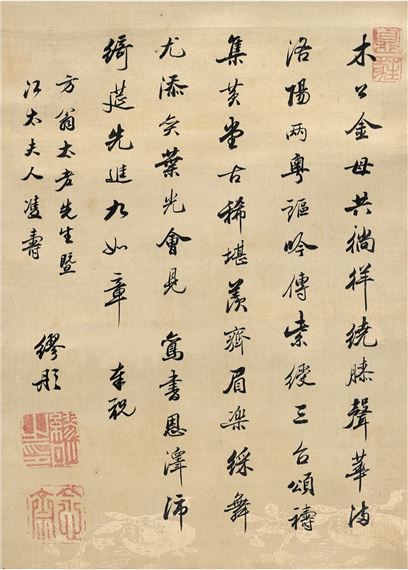 木公金母共徜徉繞膝聲華滿
洛陽兩粵謳吟傳紫綬三台頌禱
集黃堂古稀堪羨齊眉樂綵舞
尤添奕葉光會見書恩澤沛
綺筵先進九如章 奉祝
方翁太老先生暨
江太夫人雙壽
繆彤
繆彤之印
念齋